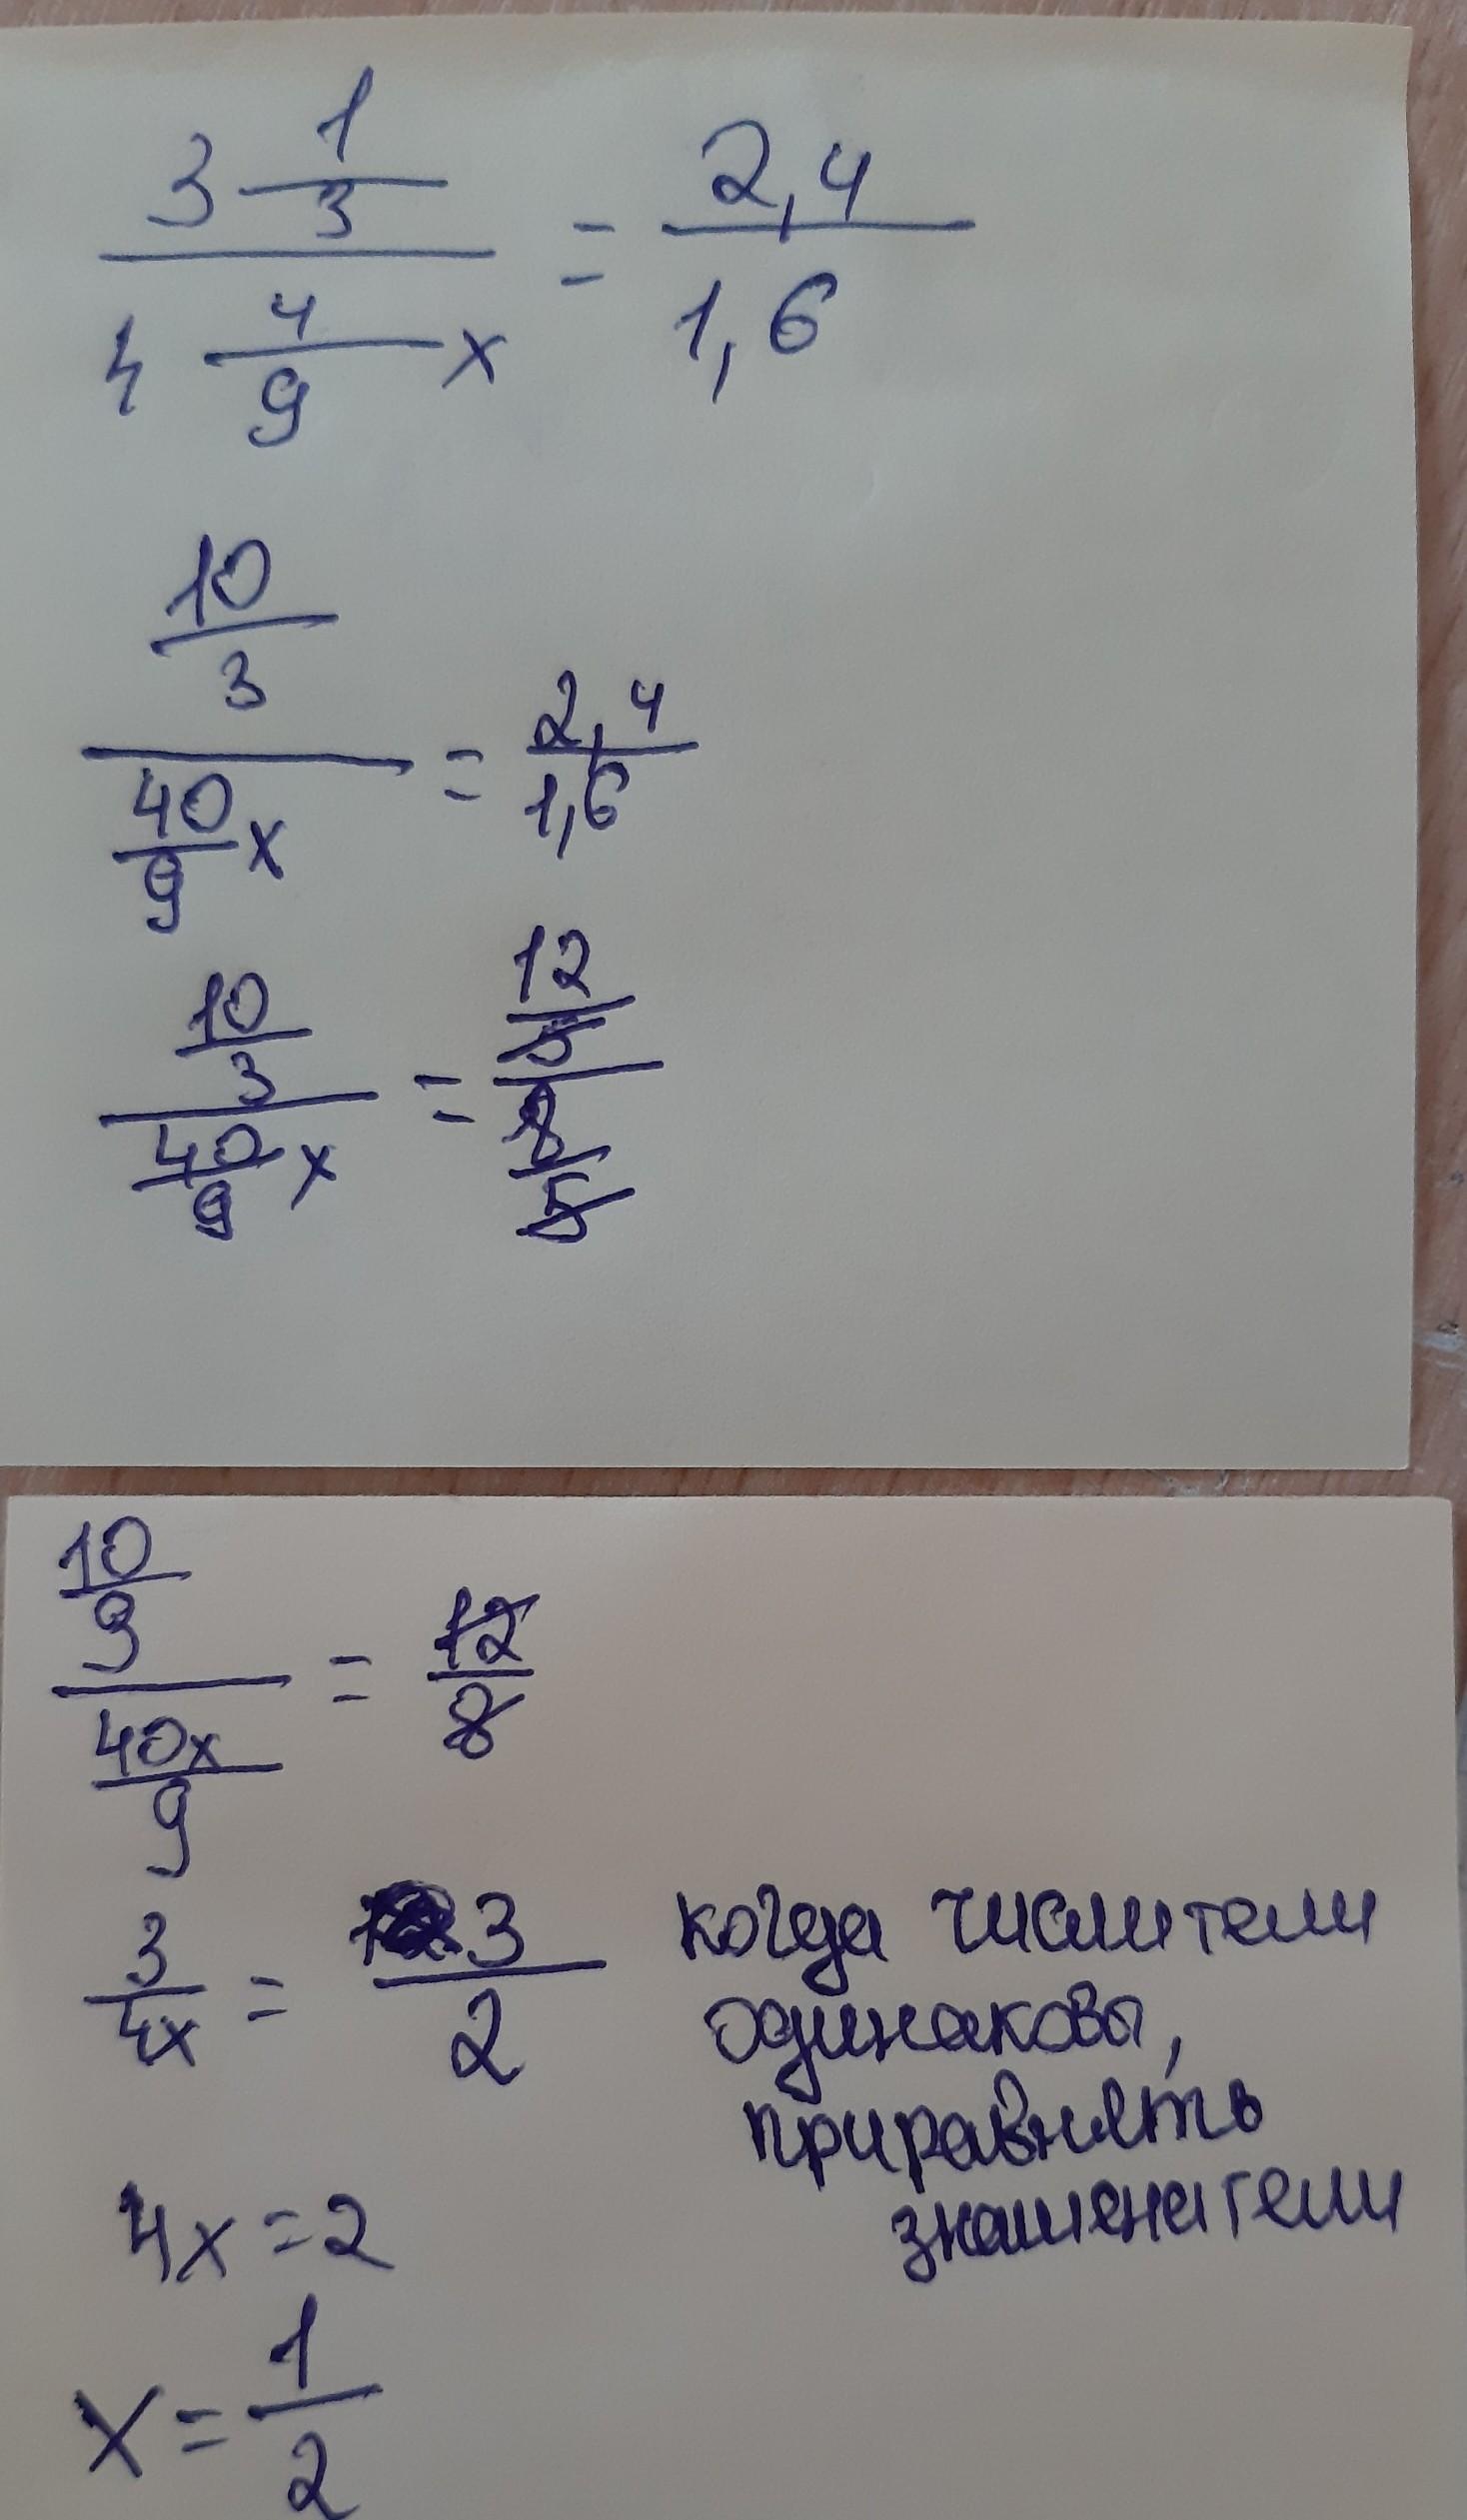 3 1/3 / 4 4/9 x = 2,4 / 1,6
10/3 / 40/9 x = 2,4 / 1,6
10/3 / 40/9 x = 12/5 / 8/5
10/3 / 40x/9 = 12/8
3/4x = 3/2 когда числители
одинаковы,
приравнять
знаменатели
4x = 2
x = 1/2